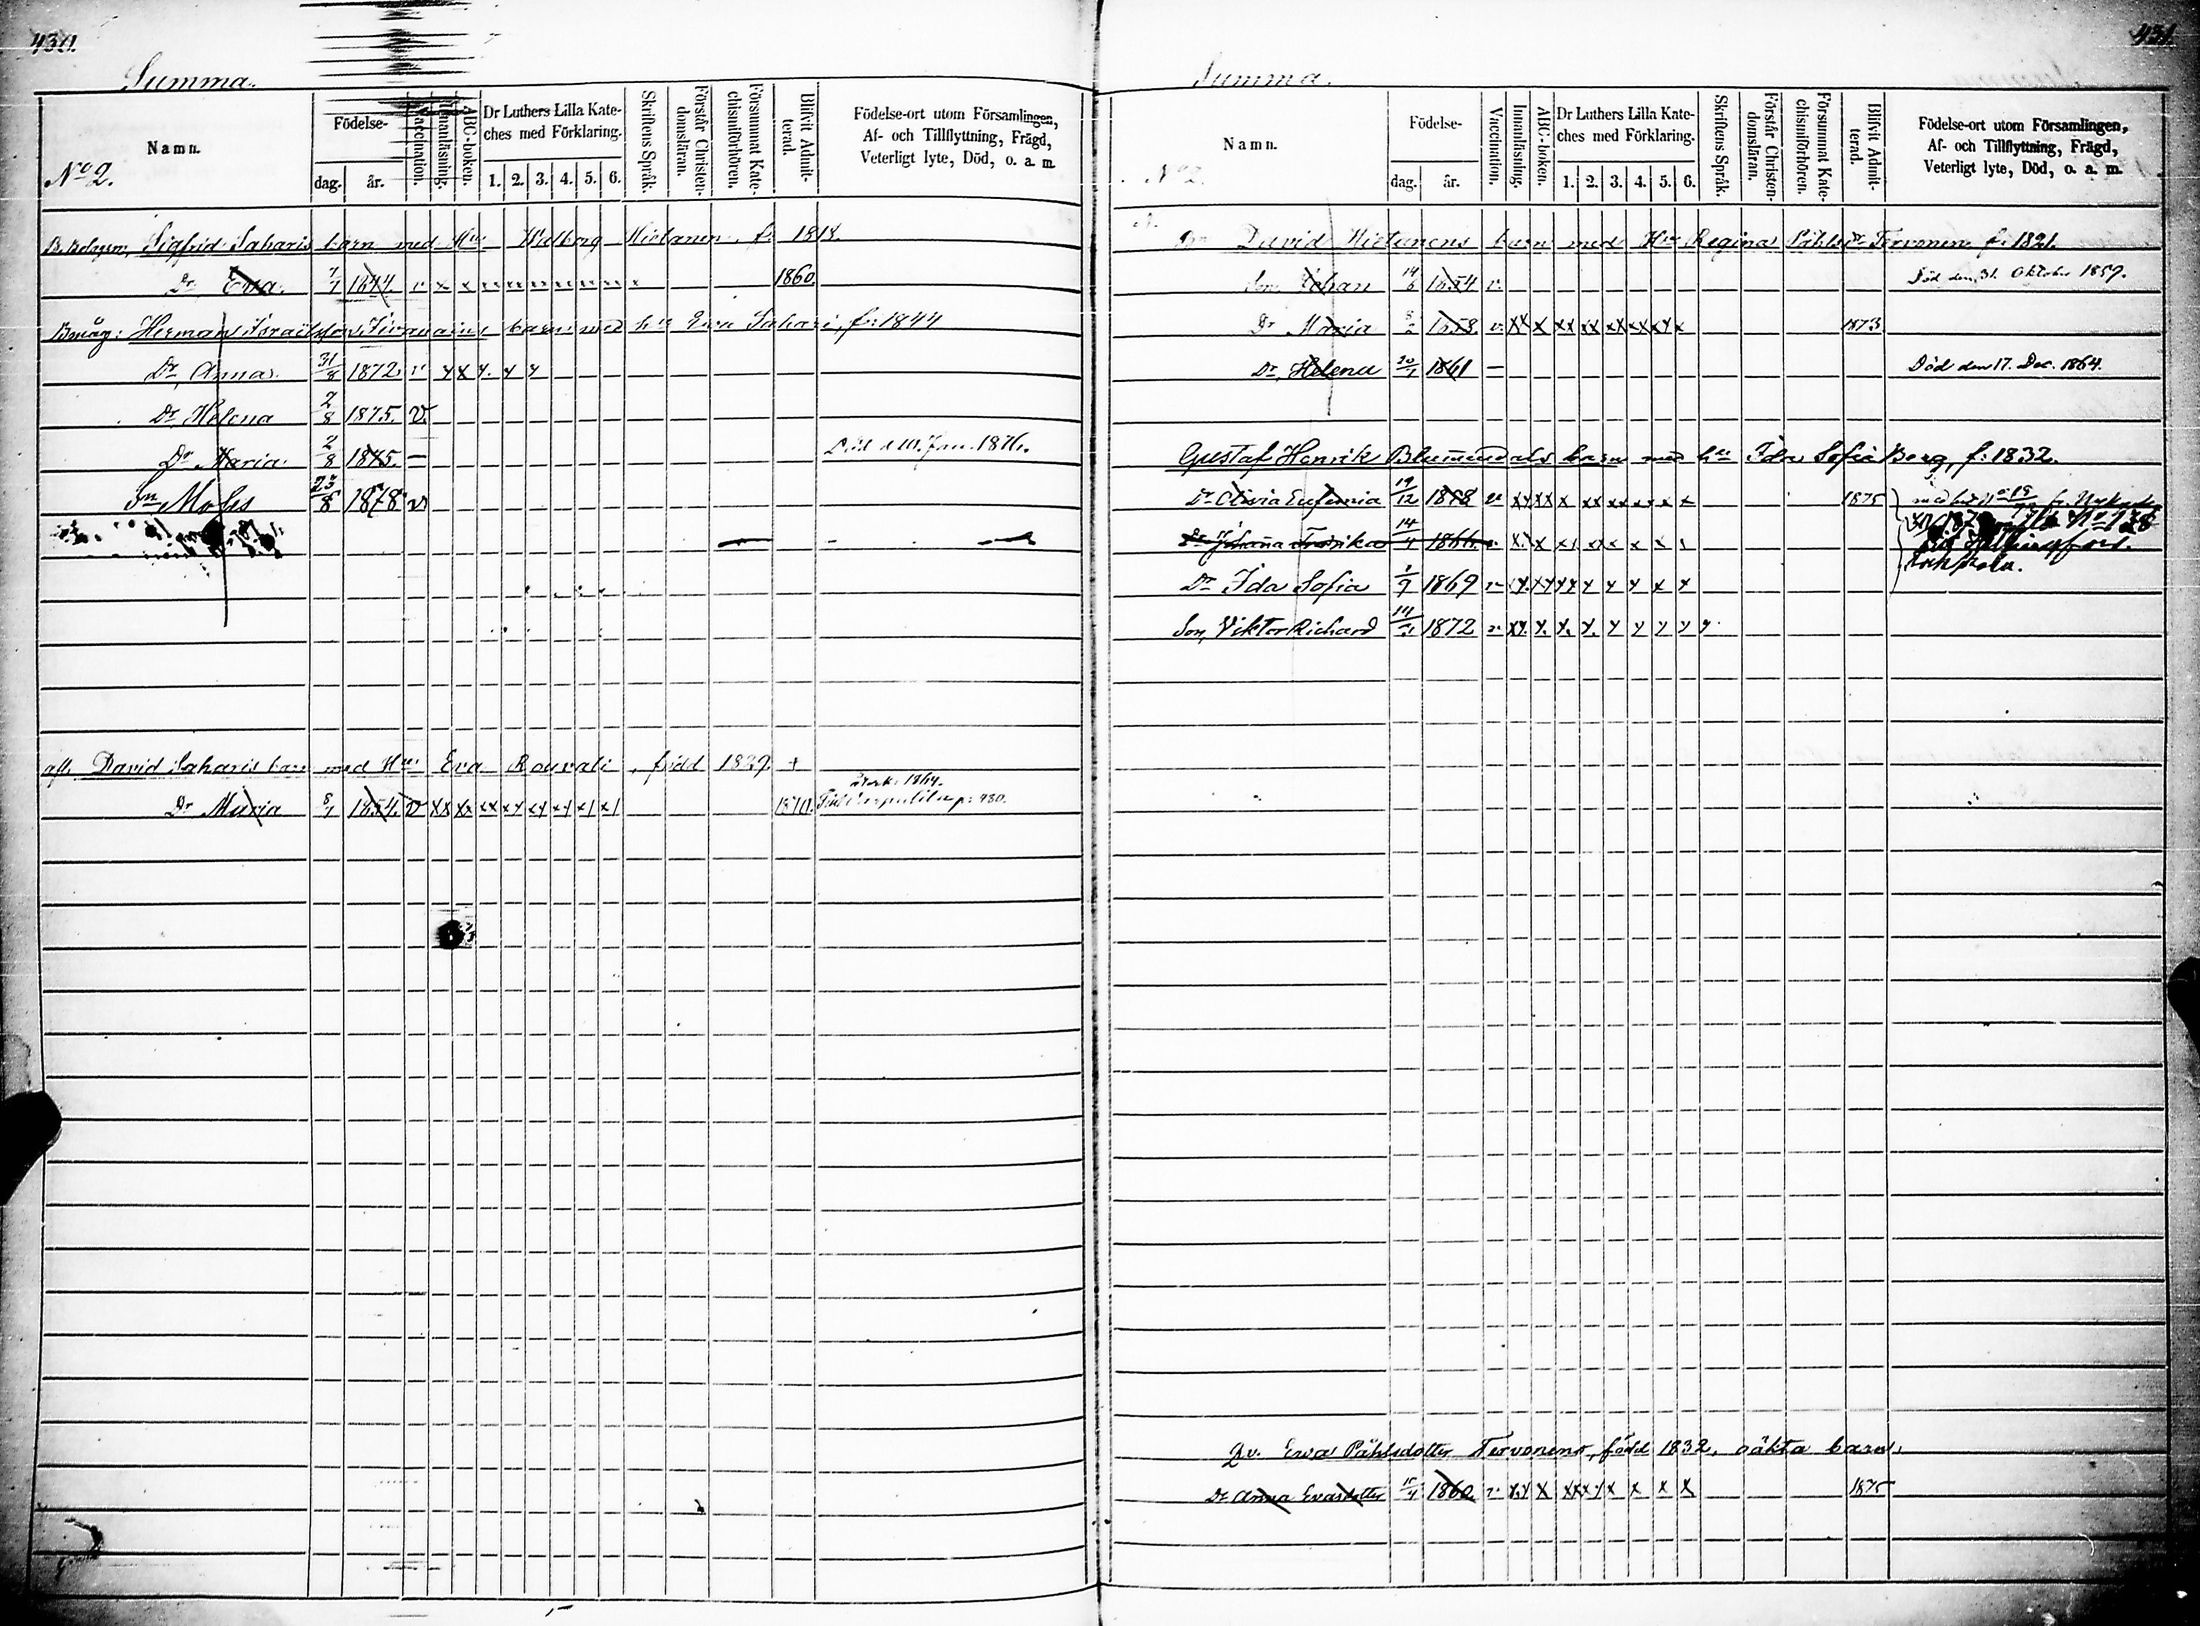 430.
Summa.
Namn.
No 2.
Födelse-
dag. år.
Vaccination.
Innanläsning.
ABC-boken.
Dr Luthers Lilla Kate-
ches med Förklaring.
1. 2. 3. 4. 5. 6.
Skriftens Språk.
Förstår Christen-
domsläran.
Försummat Kate-
chismiförhören.
Blifvit Admit-
terad.
Födelse-ort utom Församlingen,
Af- och Tillflyttning, Frägd,
Veterligt lyte, Död, o. a. m.
Sigfrid Saharis barn med Hu Walborg Hietanen f. 1818.
Dr Eva. 7/7 1844. v x x 1860.
Bmåg: Herman barn med hu Eva Sahari, f: 1844
Dr, Anna. 31/8 1872. v x x x. x x
Dr Helena 2/8 1875. v.
Dr Maria 2/8 1875. — Död d. Jan. 1876.
Sn Moses 23/8 1878 v
afl. David Saharis barn med Hu Eva Rouvali, född 1829. +
1864.
Dr Maria 8/7 1854. v xx xx xx xx xx xx xx xx 1870. p: 980.
431.
Summa.
Namn.
No 2.
Födelse-
dag. år.
Vaccination.
Innanläsning.
ABC-boken.
Dr Luthers Lilla Kate-
ches med Förklaring.
1. 2. 3. 4. 5. 6.
Skriftens Språk.
Förstår Christen-
domsläran.
Försummat Kate-
chismiförhören.
Blifvit Admit-
terad.
Födelse-ort utom Församlingen,
Af- och Tillflyttning, Frägd,
Veterligt lyte, Död, o. a. m.
David Hietanens barn med Hu Regina Påhls Dr Tervonen f: 1821.
Son Johan 14/6 1854 v. Död den 31. Oktober 1859.
Dr Maria 8/2 1858 v. xx x xx xx xx xx xx x 1873
Dr, Helena 20/7 1861 — Död den 17. Dec. 1864.
Gustaf Henrik Blumendals barn med hu Ida Sofia Berg, f: 1832.
Dr Olivia Eufemia 19/12 1858 v xx xx x xx xx x x x 1875
Dr Johanna Fredrika 14/4 1866. v. x. x x x x x x
Helsingfors.
Dr Ida Sofia 1/7 1869 v x. xx xx x x x x x
Son, Viktor Richard 1872 v xx. x. x. x. x x x x x.
Qv. Eva Påhlsdotter Tervonens, född 1832, oäkta barn,
Dr Anna Evasdotter 15/4 1860 v x.x x xx xx x x x x 1875